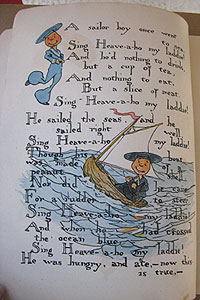 A sailor boy once went to
Sing Heave-a-ho my laddie!
And he'd nothing to drink
but a cup of tea,
And nothing to eat,
But a slice of meat.
Sing Heave-a-ho my laddie!
He sailed the seas, and he
sailed right well,
Sing Heave-a-ho my
Though his boat
was made
peanut
Nor did he care
For a rudder to steer
Sing Heave-a-ho my laddie!
And when he had crossed
the ocean blue,
Sing Heave-a-ho my laddie!
He was hungry, and ate—now this
is true,—